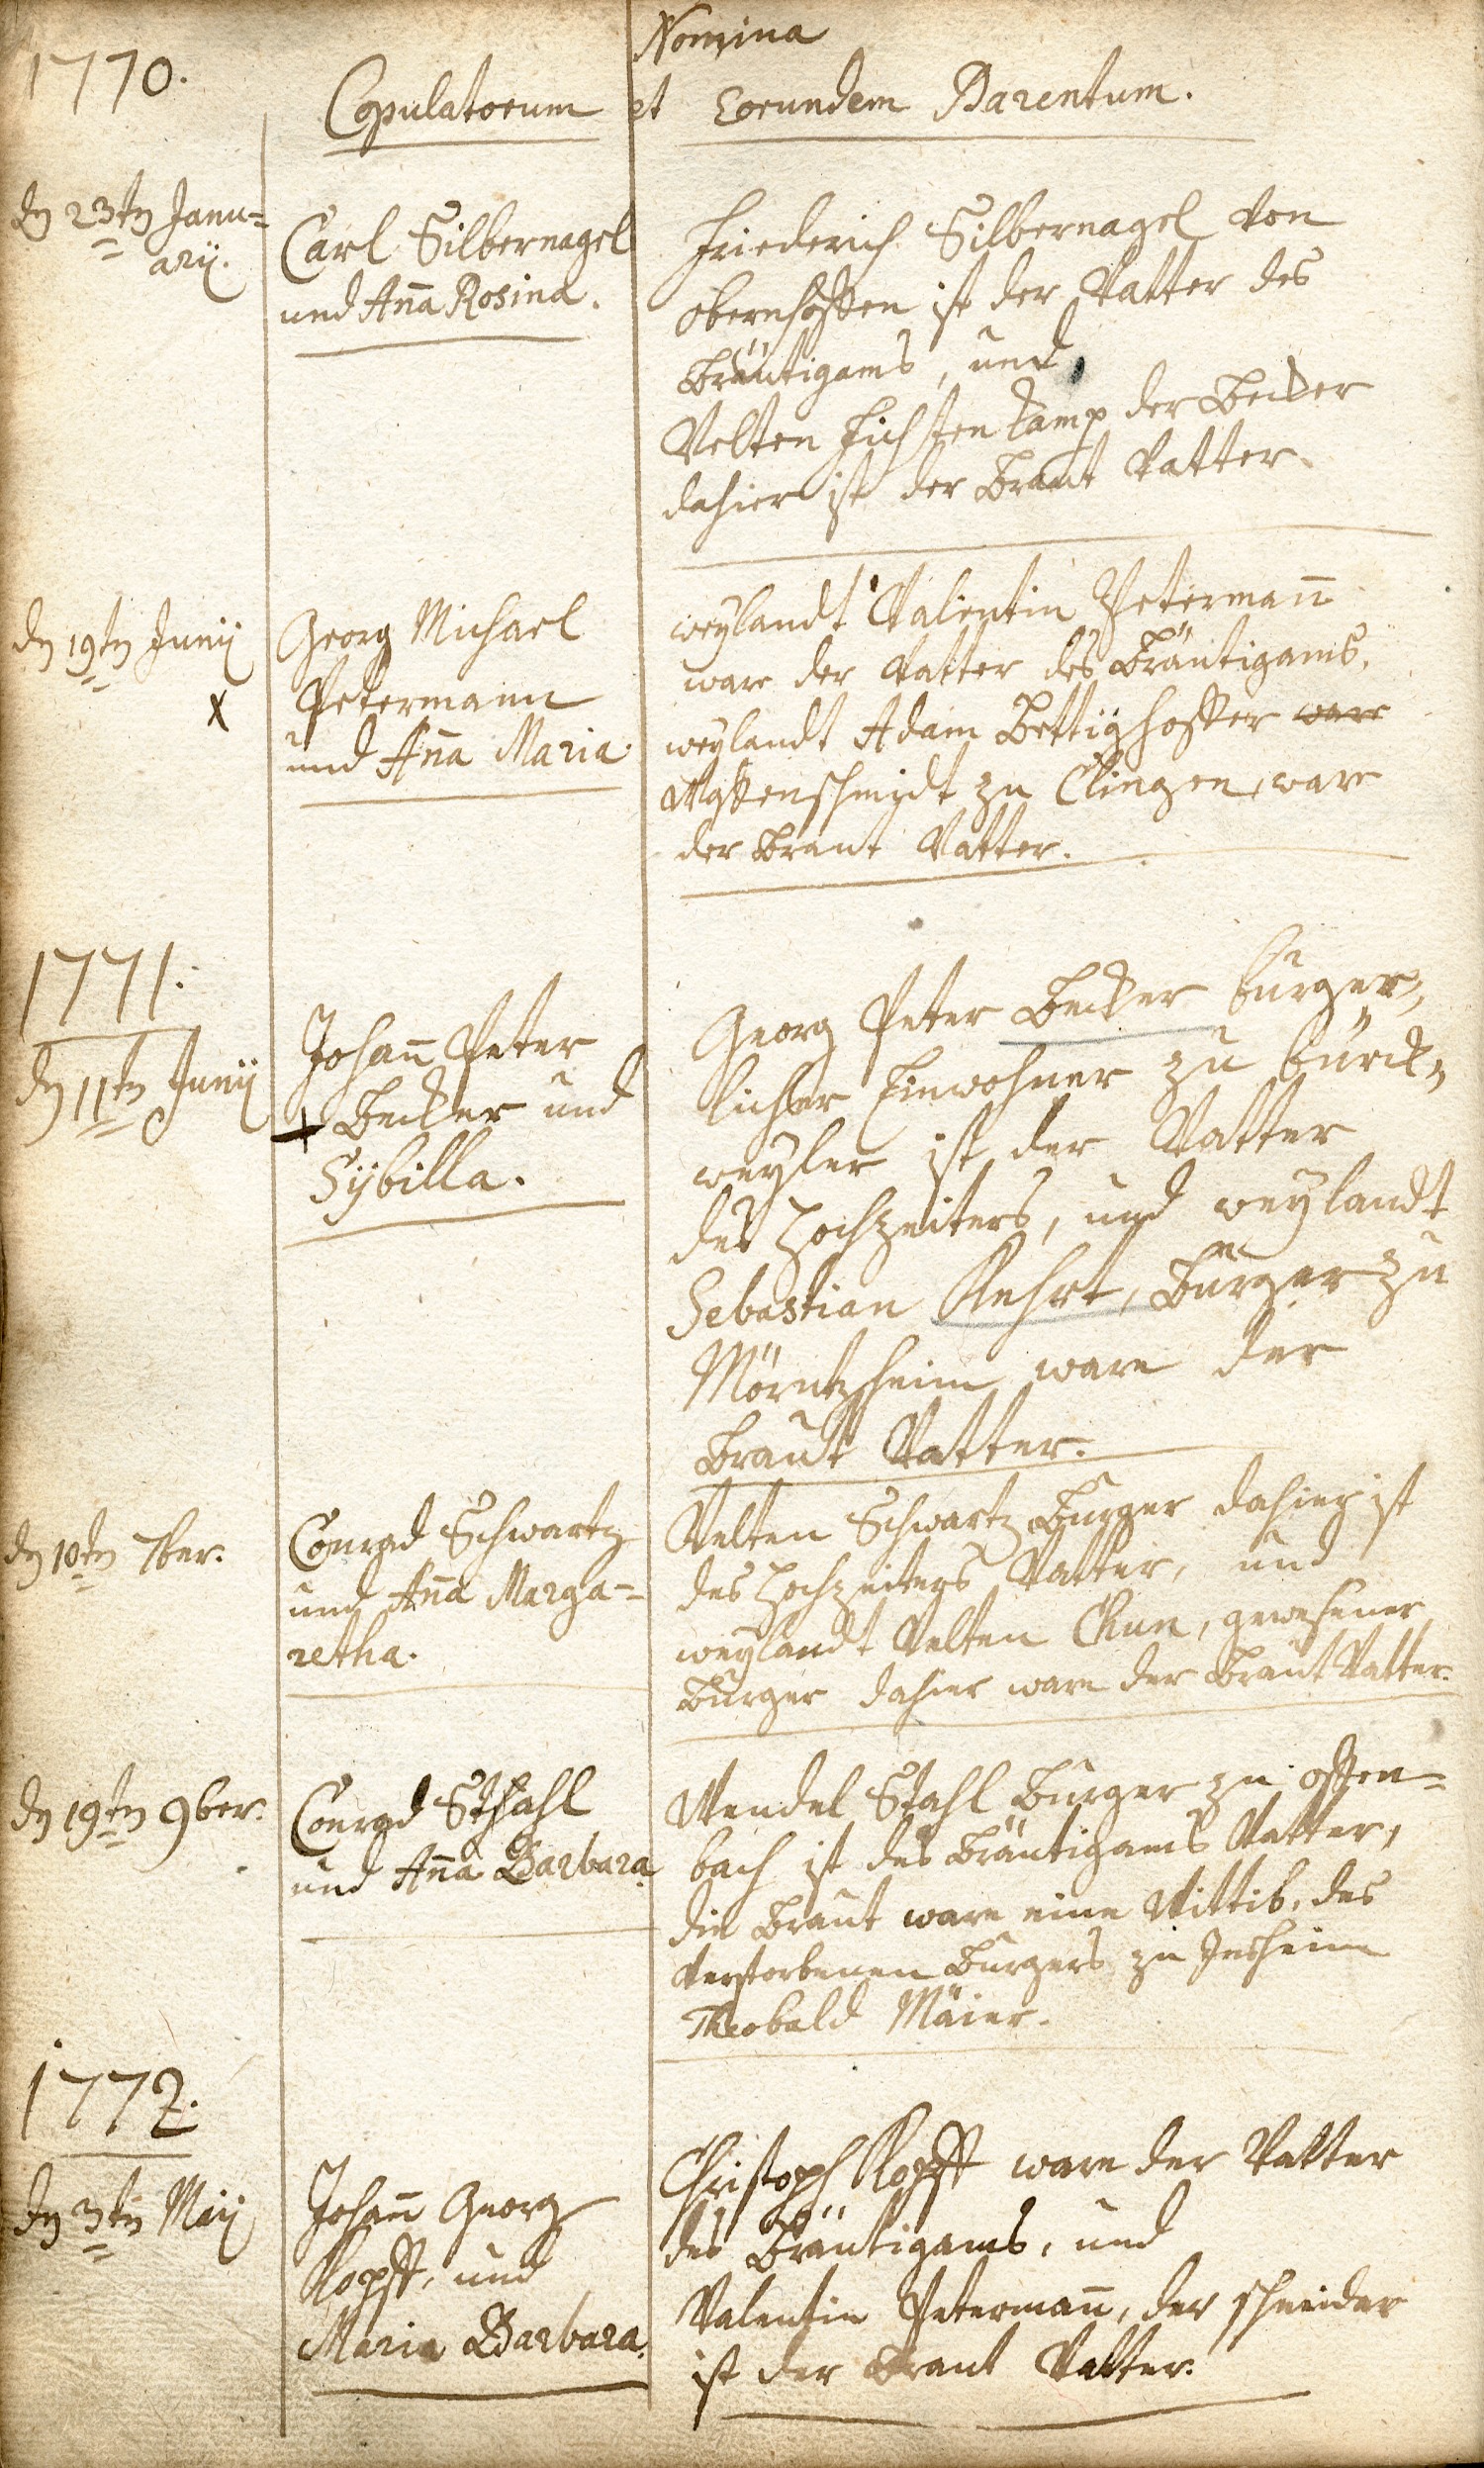 Nomina
1770.
Copulatorum et Eorundem Parentum.
dn 23tn Janu=
arij.
Carl Silbernagel
und Anna Rosina.
Friederich Silbernagel von
obernhoffen ist der Vatter des
Bräutigams, und
Velten Fichtenkamp der Becker
dahier ist der Braut Vatter.
dn 19tn Junij
x
Georg Michael
Petermann
und Anna Maria
weylandt Valentin Petermann
ware der Vatter des Bräutigams.
weylandt Adam Bettighoffer ware
Waffenschmidt zu Clingen, ware
der Braut Vatter.
1771.
dn 11tn Junij
Johann Peter
+ Becker und
Sÿbilla.
Georg Peter Becker burger,,
licher Einwohner zu bürck,,
weyler ist der Vatter
des Hochzeiters, und weylandt
Sebastian Kehrt, Burger zu
Mörntzheim ware der
Braut Vatter.
dn 10tn 7ber.
Conrad Schwartz
und Anna Marga=
retha.
Velten Schwartz Burger dahier ist
des Hochzeiters Vatter, und
weylandt Velten Chun, gewesener
Burger dahier ware der Braut Vatter.
dn 19tn 9ber.
Conrad Sthahl
und Anna Barbara
Wendel Stahl Burger zu offen=
bach ist des Bräutigams Vatter,
die Braut ware eine Wittib, des
verstorbenen Burgers zu Insheim
Theobald Mäier.
1772.
dn 3tn Maij
Johann Georg
Kopff, und
Maria Barbara.
Christoph Kopff ware der Vatter
des Bräutigams, und
Valentin Petermann, der schneider
ist der Braut Vatter.